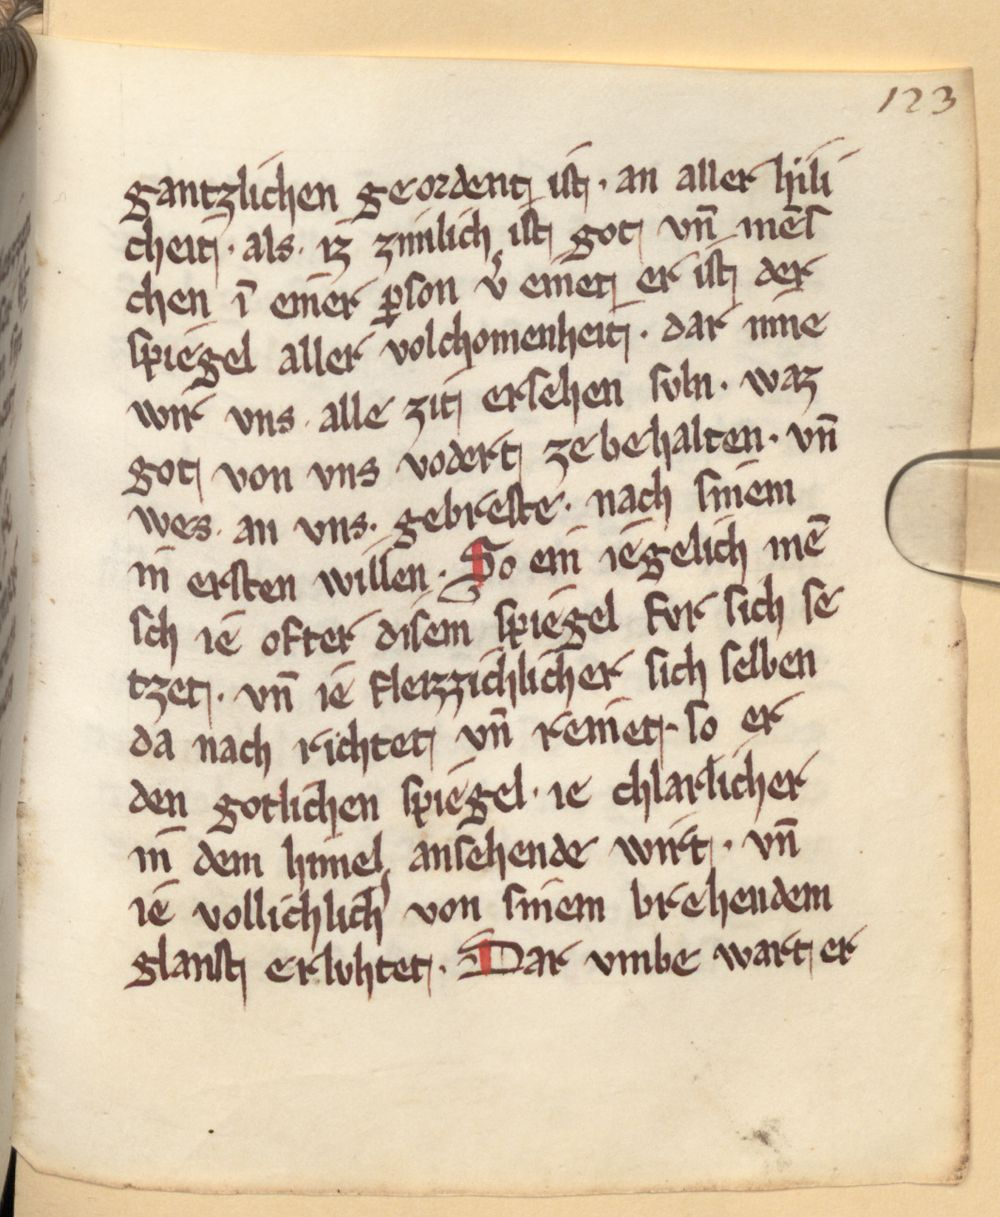 123
gantzlichen geordent ist · an aller hili
cheit · als · iz zimlich ist got vn̄ mēſ
chen ī einer ꝑson v̾einet er ist der
spiegel aller volchomenheit · dar inne
wir vns · alle zit ersehen soln · waz
got von vns vodert ze behalten · vn̄
wes · an vns · gebreste · nach sinem
in ersten willen · So ein iegelich mē
sch ie ofter disem spiegel for sich se
tzet · vn̄ ie flerzzichlicher sich selben
da nach richtet vn̄ reinet · so er
den gotlichen spiegel · ie chlarlicher
in dem himel ansehende wirt · vn̄
ie vollichlich̾ von sinem brehendem
glanst erlohtet · Dar vmbe wart er